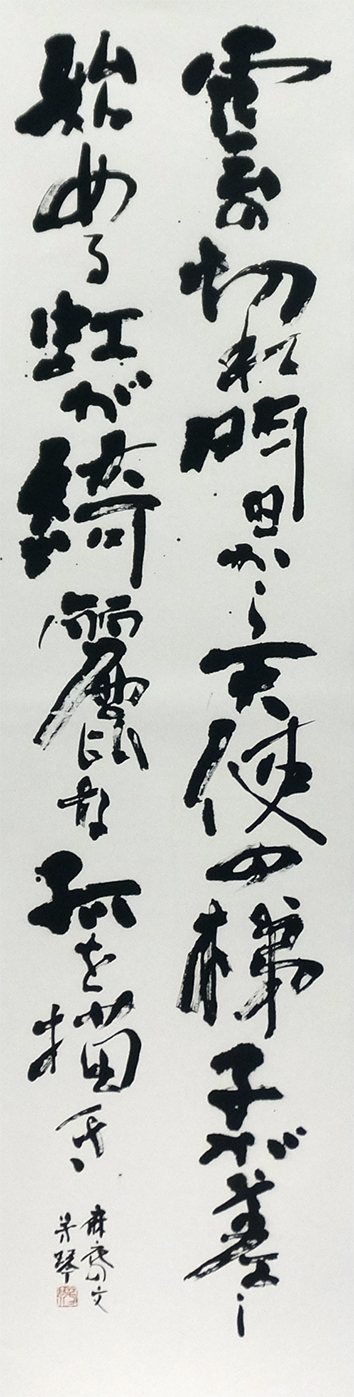 雲の切れ間から天使の梯子が差し
始める虹が綺麗な弧を描き